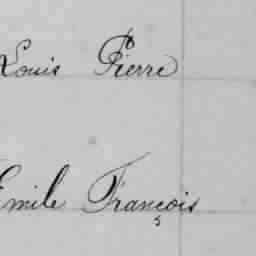 Louis Pierre
Emile François